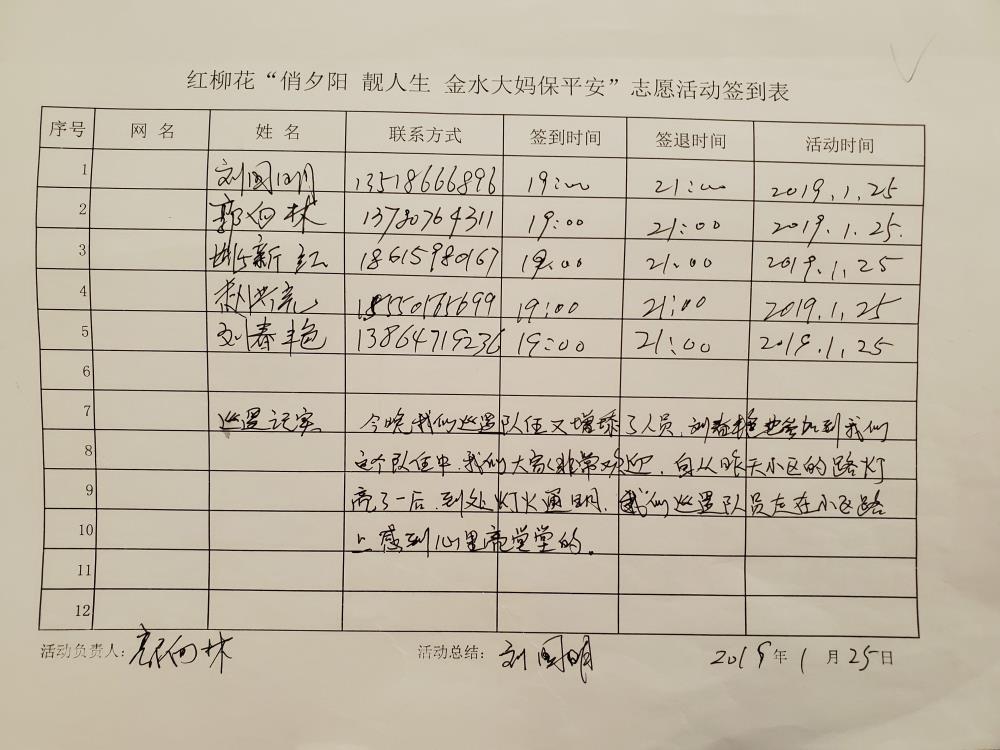 红柳花“俏夕阳 靓人生 金水大妈保平安”志愿活动签到表
序号 网 名 姓 名 联系方式 签到时间 签退时间 活动时间
1 刘国明 13518666896 19:00 21:00 2019.1.25
2 郭向林 13780764311 19:00 21:00 2019.1.25.
3 新红 18615980167 19:00 21:00 2019.1.25
4 19:00 21:00 2019.1.25
5 刘春艳 13864719236 19:00 21:00 2019.1.25
6
7 巡逻记实 今晚我们巡逻队伍又增添了人员,刘春艳也参加到我们
8 这个队伍中.我们大家非常欢迎.自从昨天小区的路灯
9 亮了一后.到处灯火通明.我们巡逻队员走在小区路
10 上感到心里亮堂堂的.
11
12
活动负责人: 郭向林 活动总结: 刘国明 2019年1月25日